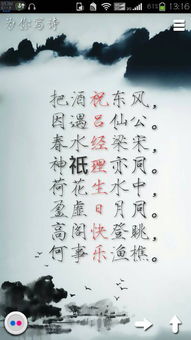 13:16
为你写诗
把酒祝东风，
因遇吕仙公。
春水经梁宋，
神祇理亦同。
荷花生水中，
盈虚日月同。
高阁快登眺，
何事乐渔樵。